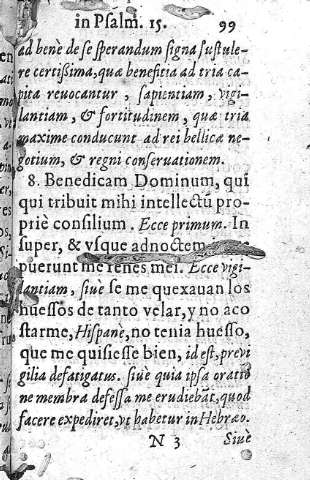 in Psalm. 15. 99
ad benè de se sperandum signa sustule-
re certissima, quæ benefitia ad tria ca-
pita reuocantur, sapientiam, vigi-
lantiam, & fortitudinem, quæ tria
maxime conducunt ad rei bellicæ ne-
gotium, & regni conseruationem.
8. Benedicam Dominum, qui
qui tribuit mihi intellectũ pro-
priè consilium. Ecce primum. In
super, & vsque ad noctem
puerunt me renes mei. Ecce vigi-
lantiam, siuè se me quexauan los
huessos de tanto velar, y no aco
starme, Hispanè, no tenia huesso,
que me quisiesse bien, id est, prevì
gilia defatigatus. siuè quia ipsa oratio
ne membra defessa me erudiebãt, quod
facere expediret, vt habetur in Hebræo.
N 3 Siuè